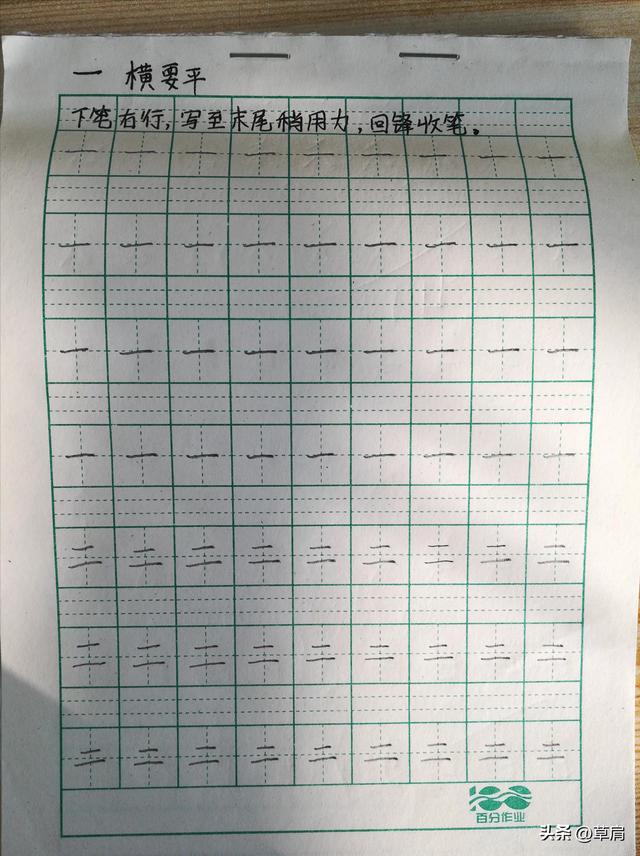 一 横要平
下笔右行,写至末尾稍用力,回锋收笔。
一 一 一 一 一 一 一 一 一
一 一 一 一 一 一 一 一 一
一 一 一 一 一 一 一 一 一
一 一 一 一 一 一 一 一 一
二 二 二 二 二 二 二 二 二
二 二 二 二 二 二 二 二 二
二 二 二 二 二 二 二 二 二
100
百分作业
头条 @草肩